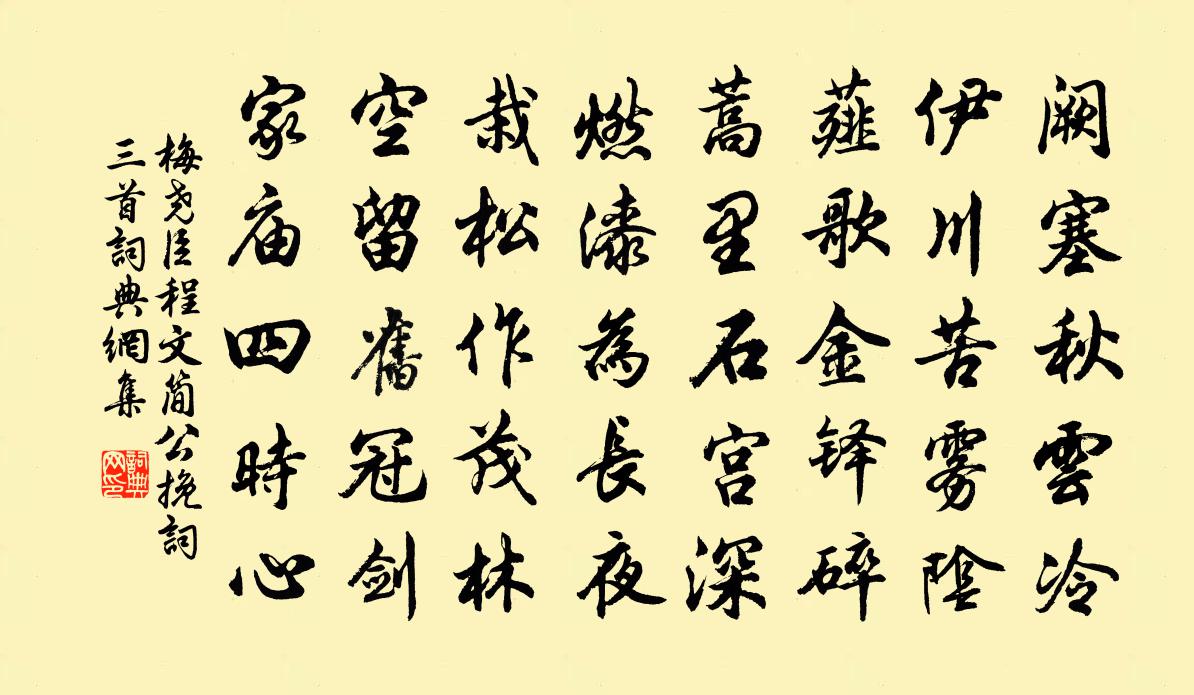 阙塞秋雲冷
伊川苦雾陰
薤歌金铎碎
蒿里石宫深
燃漆為長夜
栽松作茂林
空留舊冠剑
家庙四時心
梅尧臣程文简公挽詞
三首詞典網集
詞典
网印